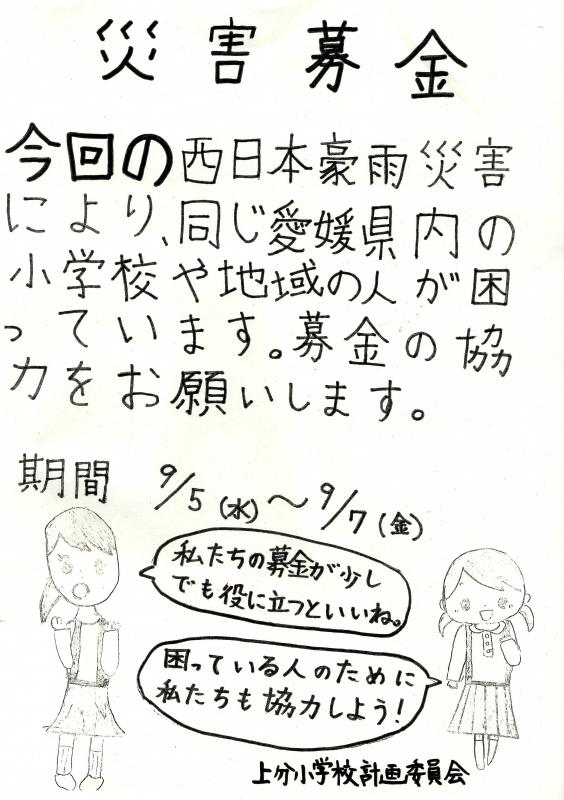 災害募金
今回の西日本豪雨災害
により、同じ愛媛県内の
小学校や地域の人が困
っています。募金の協
力をお願いします。
期間 9/5(水)〜9/7(金)
私たちの募金が少し
でも役に立つといいね。
困っている人のために
私たちも協力しよう!
上分小学校計画委員会